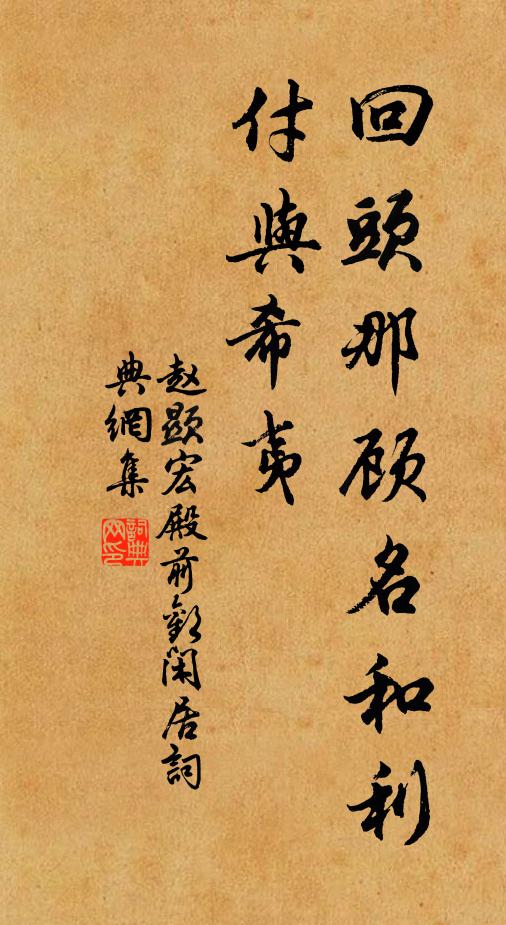 回頭那顧名和利
付與希夷
赵顯宏殿前歡閑居詞
典網集
詞典網印